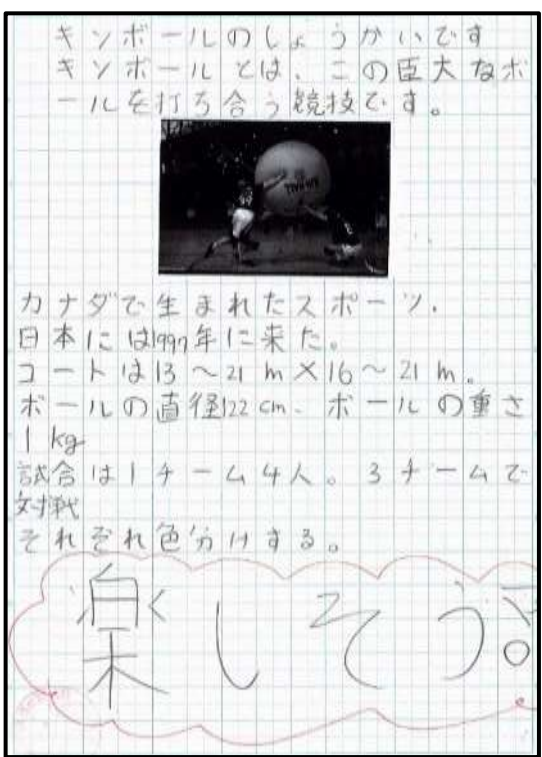 キンボールのしょうかいです
キンボールとは、この巨大なボ
ールを打ち合う競技です。
カナダで生まれたスポーツ.
日本には1997年に来た。
コートは13〜21m×16〜21m。
ボールの直径122cm、ボールの重さ
1kg
試合は1チーム4人。3チームで
対戦
それぞれ色分けする。
楽しそう